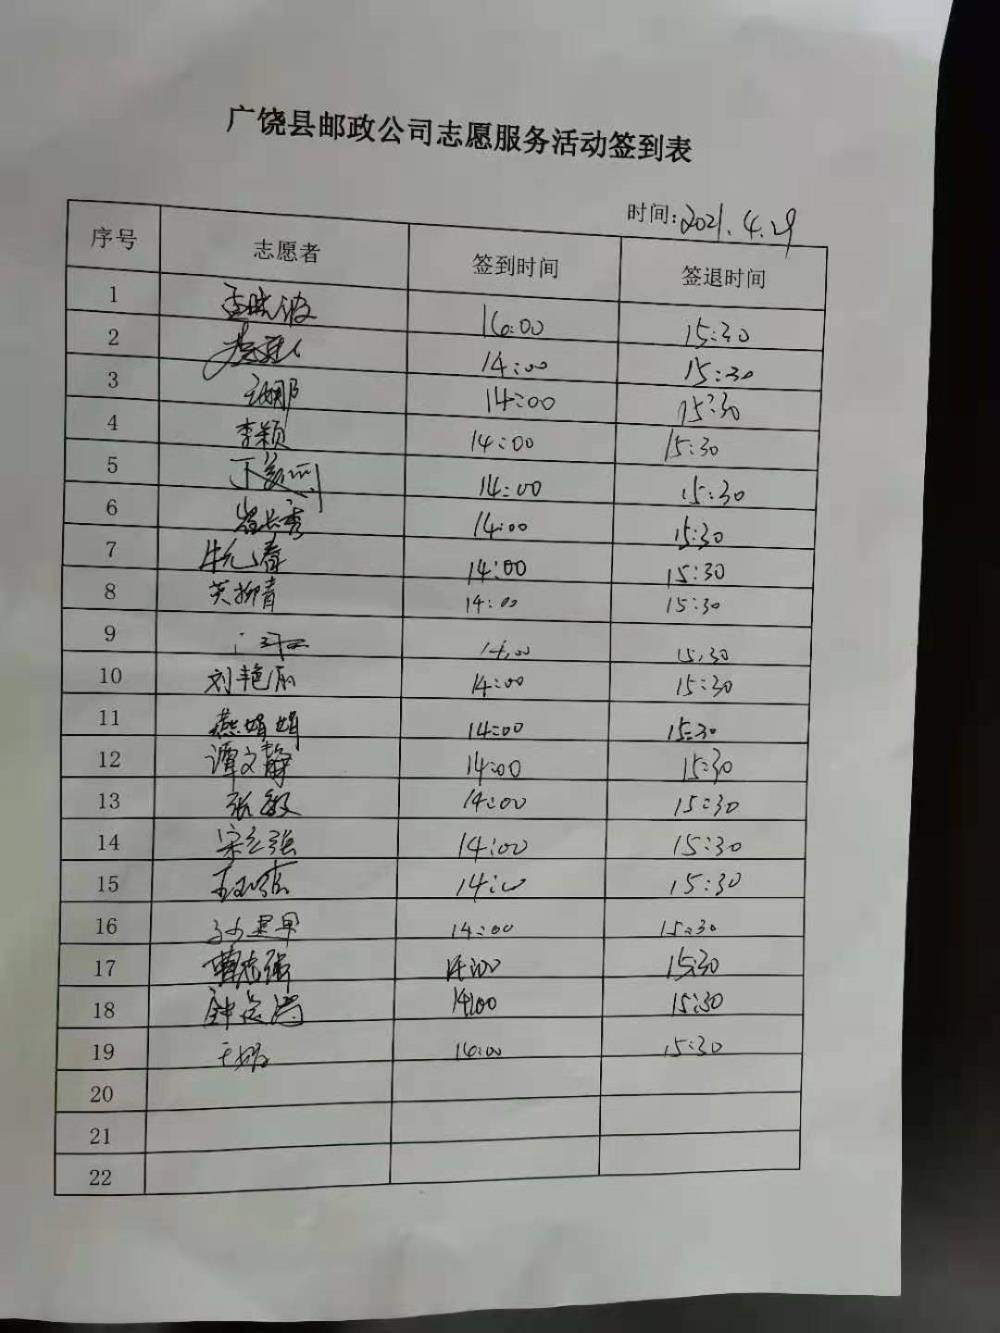 广饶县邮政公司志愿服务活动签到表
时间:2021.4.29
序号 志愿者 签到时间 签退时间
1 16:00 15:30
2 14:00 15:30
3 14:00 15:30
4 李颖 14:00 15:30
5 14:00 15:30
6 14:00 15:30
7 14:00 15:30
8 14:00 15:30
9 14:00 15:30
10 刘艳丽 14:00 15:30
11 燕娟娟 14:00 15:30
12 谭文静 14:00 15:30
13 张敏 14:00 15:30
14 宋立强 14:00 15:30
15 14:00 15:30
16 14:00 15:30
17 曹志强 14:00 15:30
18 14:00 15:30
19 王娜 14:00 15:30
20
21
22